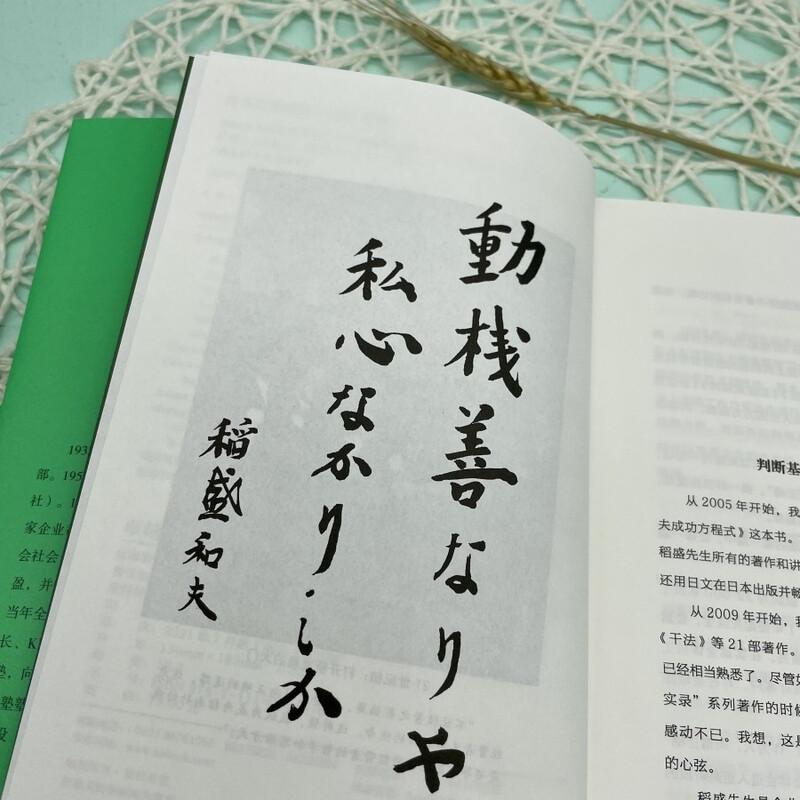 動機善なりや
私心なかりしか
稲盛和夫
193
部。195
社）。1
家企业
会社会
盈，并
当年全
长、K
塾，向
塾塾
设
判断基
从 2005 年开始，我
夫成功方程式》这本书。
稻盛先生所有的著作和讲
还用日文在日本出版并畅
从 2009 年开始，
《干法》等 21 部著作。
已经相当熟悉了。尽管
实录”系列著作的时候
感动不已。我想，这是
的心弦。
稻盛先生是企业